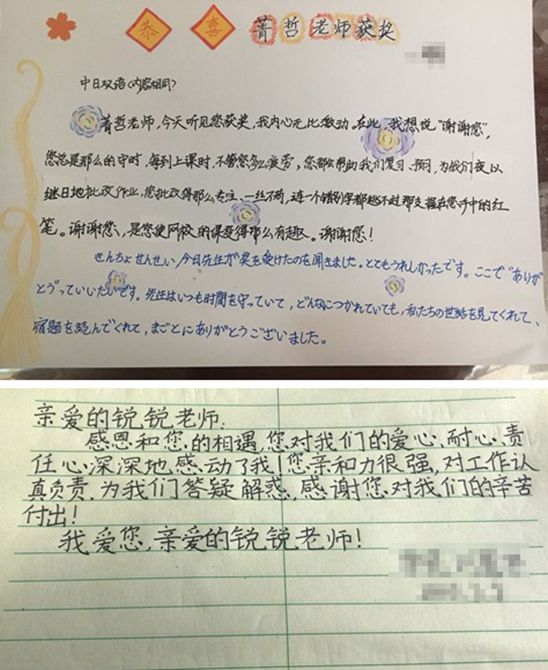 恭喜 菁哲老师获奖
中日双语(内容相同)
菁哲老师,今天听见您获奖,我内心无比激动。在此,我想说"谢谢您",
您总是那么的守时,每到上课时,不管您多么疲劳,您都会帮助我们复习、预习,为我们夜以
继日地批改作业,您批改得那么专注,一丝不苟,连一个错别字都逃不过那支握在您手中的红
笔。谢谢您,是您使网校的课变得那么有趣。谢谢您!
せんちょせんせい今日先生が奖を受けたのを聞きました。とてもうれしかったです。ここで"ありが
とう"っていいたいです。先生はいつも時間を守っていて、どんなにつかれていても、私たちの世話を見てくれて、
宿題を読んでくれて、まことにありがとうございました。
亲爱的锐锐老师:
感恩和您的相遇,您对我们的爱心、耐心、责
任心深深地感动了我!您亲和力很强,对工作认
真负责,为我们答疑解惑,感谢您对我们的辛苦
付出!
我爱您,亲爱的锐锐老师!